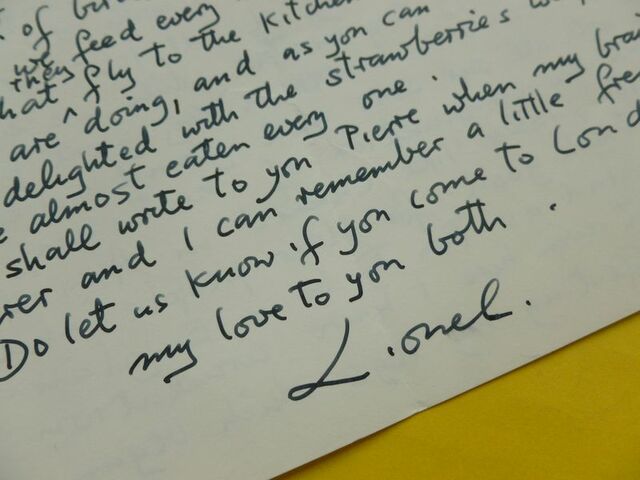 of
we feed every
they
that fly to the kitchen
are doing, and as you can
delighted with the strawberries
almost eaten every one.
shall write to you Pierre when my
rer and I can remember a little
Do let us know if you come to Lond
my love to you both.
Lionel.